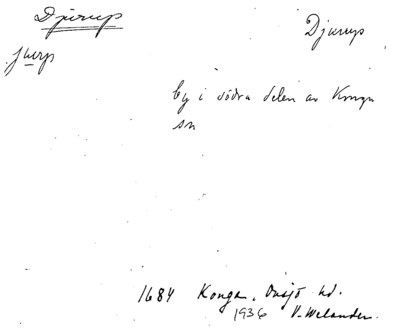 Djurup
Djurup
jurp
by i södra delen av Konga
sn
1684 Konga, Onsjö hd.
1936 V. Welander.